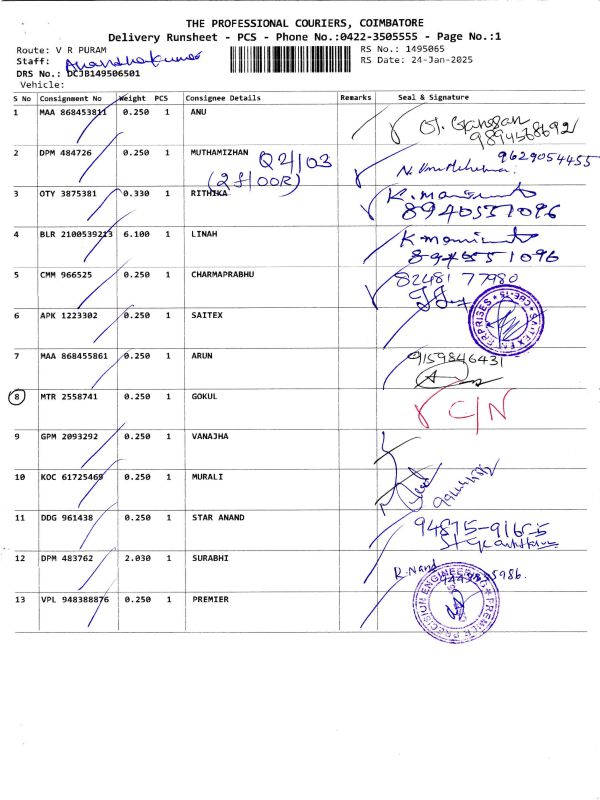 THE PROFESSIONAL COURIERS, COIMBATORE
Delivery Runsheet - PCS - Phone No.:0422-3505555 - Page No.:1
Route: V R PURAM
RS No.: 1495065
Staff: Anandhakumar
RS Date: 24-Jan-2025
DRS No.: DCJB149506501
Vehicle:
S No Consignment No Weight PCS Consignee Details Remarks Seal & Signature
1 MAA 868453811 0.250 1 ANU
9894578692
2 DPM 484726 0.250 1 MUTHAMIZHAN Q2/03 9629054455
(2 floor)
3 OTY 3875381 0.330 1 RITHIKA
8940551096
4 BLR 2100539213 6.100 1 LINAH
8940551096
5 CMM 966525 0.250 1 CHARMAPRABHU 82481 77980
6 APK 1223302 0.250 1 SAITEX
7 MAA 868455861 0.250 1 ARUN 9159846431
8 MTR 2558741 0.250 1 GOKUL C/N
9 GPM 2093292 0.250 1 VANAJHA
10 KOC 61725469 0.250 1 MURALI
11 DDG 961438 0.250 1 STAR ANAND 94875-91655
12 DPM 483762 2.030 1 SURABHI R. Nand
13 VPL 948388876 0.250 1 PREMIER PREMIER PRECISION ENGINEERING